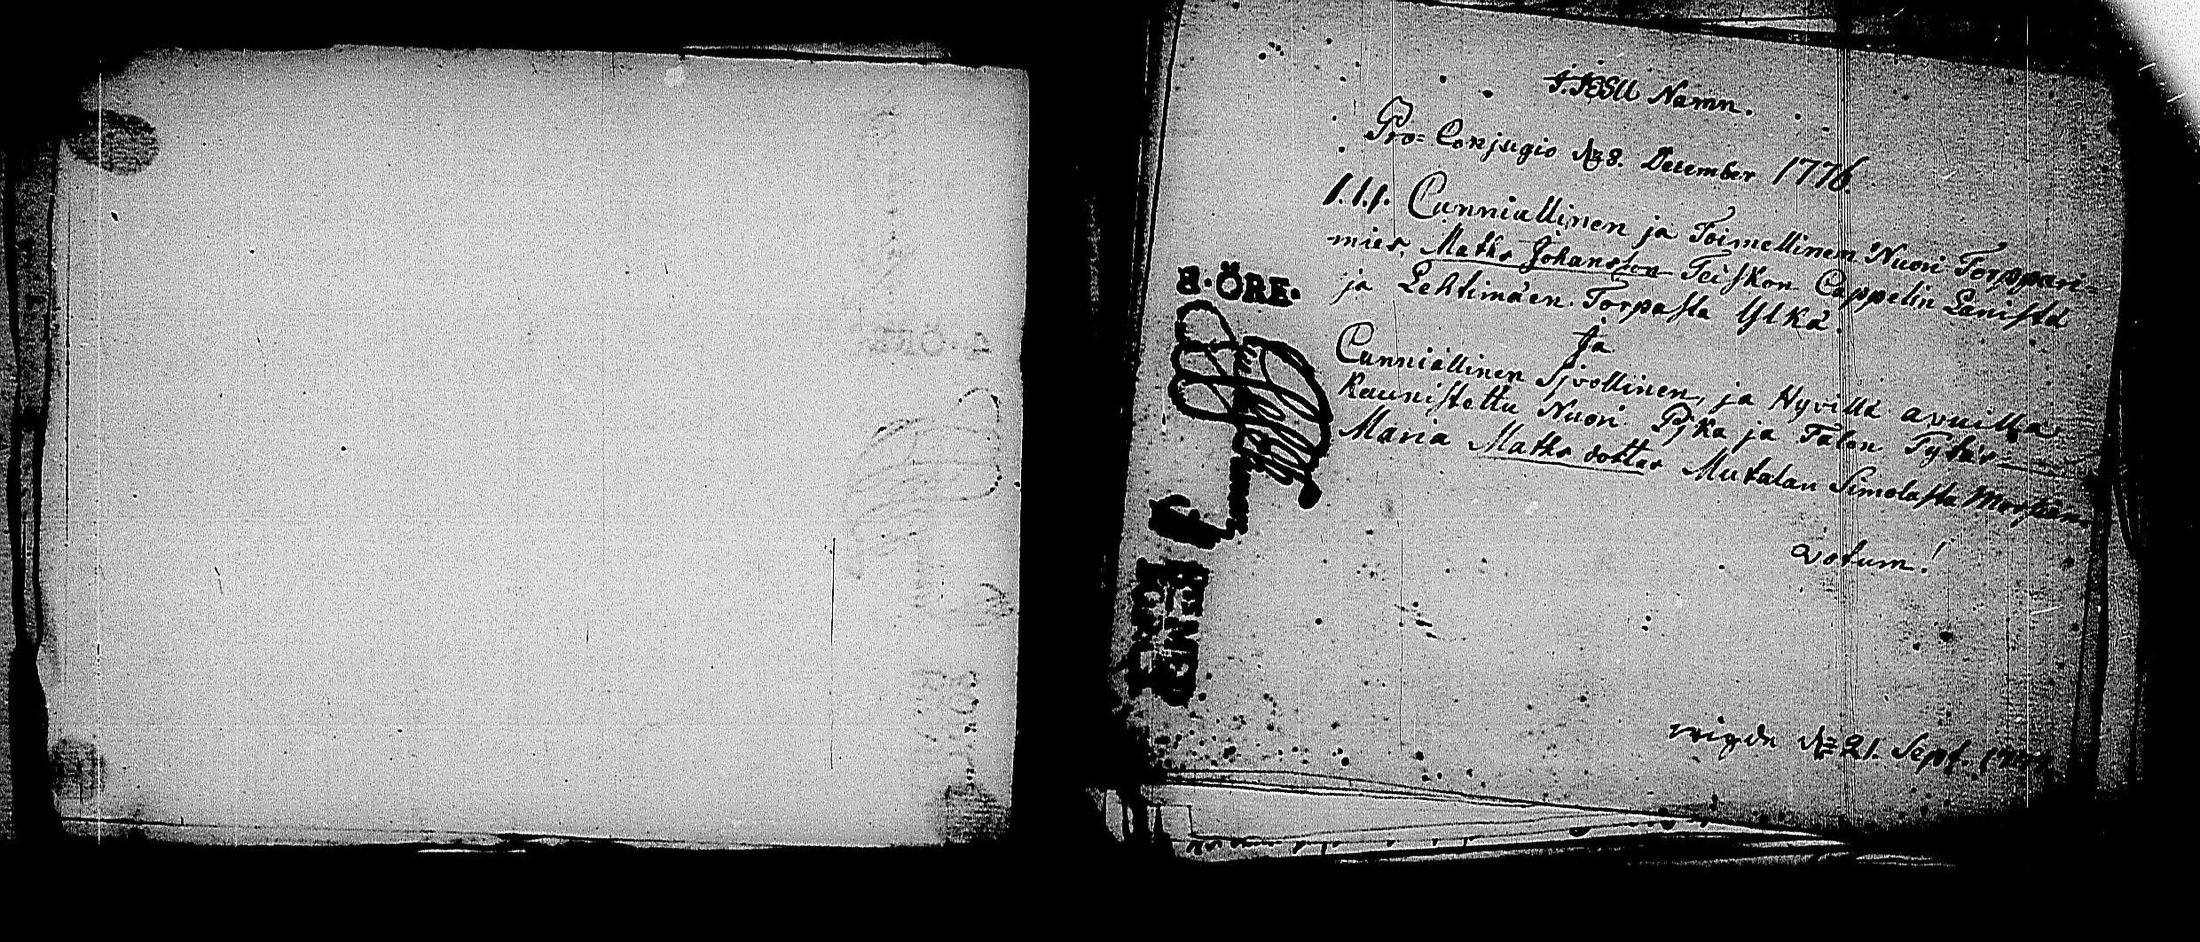 J. JESU Namn.
Pro-Conjugio d. 8. December 1776
1.1.1. Cunniallinen ja Toimellinen Nuori Torppari-
mies, Matts Johansson Teiskon Cappelin Lanistä
ja Lehtimäen Torpasta Ylkä.
Ja
Cunniallinen Sjvollinen, ja Hyvillä avuilla
Kaunistettu Nuori Pjka ja Talon Tytär
Maria Matts dotter Mutalan Simolasta Morsian
votum!
vigde d. 21. Sept.
8·ÖRE·